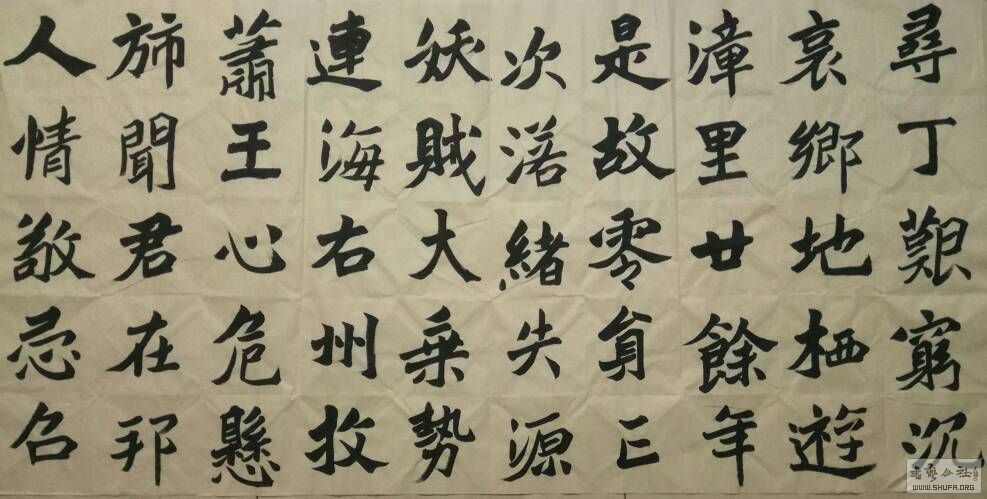 尋丁艱窮沉
哀鄉地栖遊
漳里廿餘年
是故零亡
次落緒失源
妖賊大乗勢
連海右州牧
蕭王心危懸
斾聞君在邦
人情敬忌召
书艺公社
WWW.SHUFA.ORG